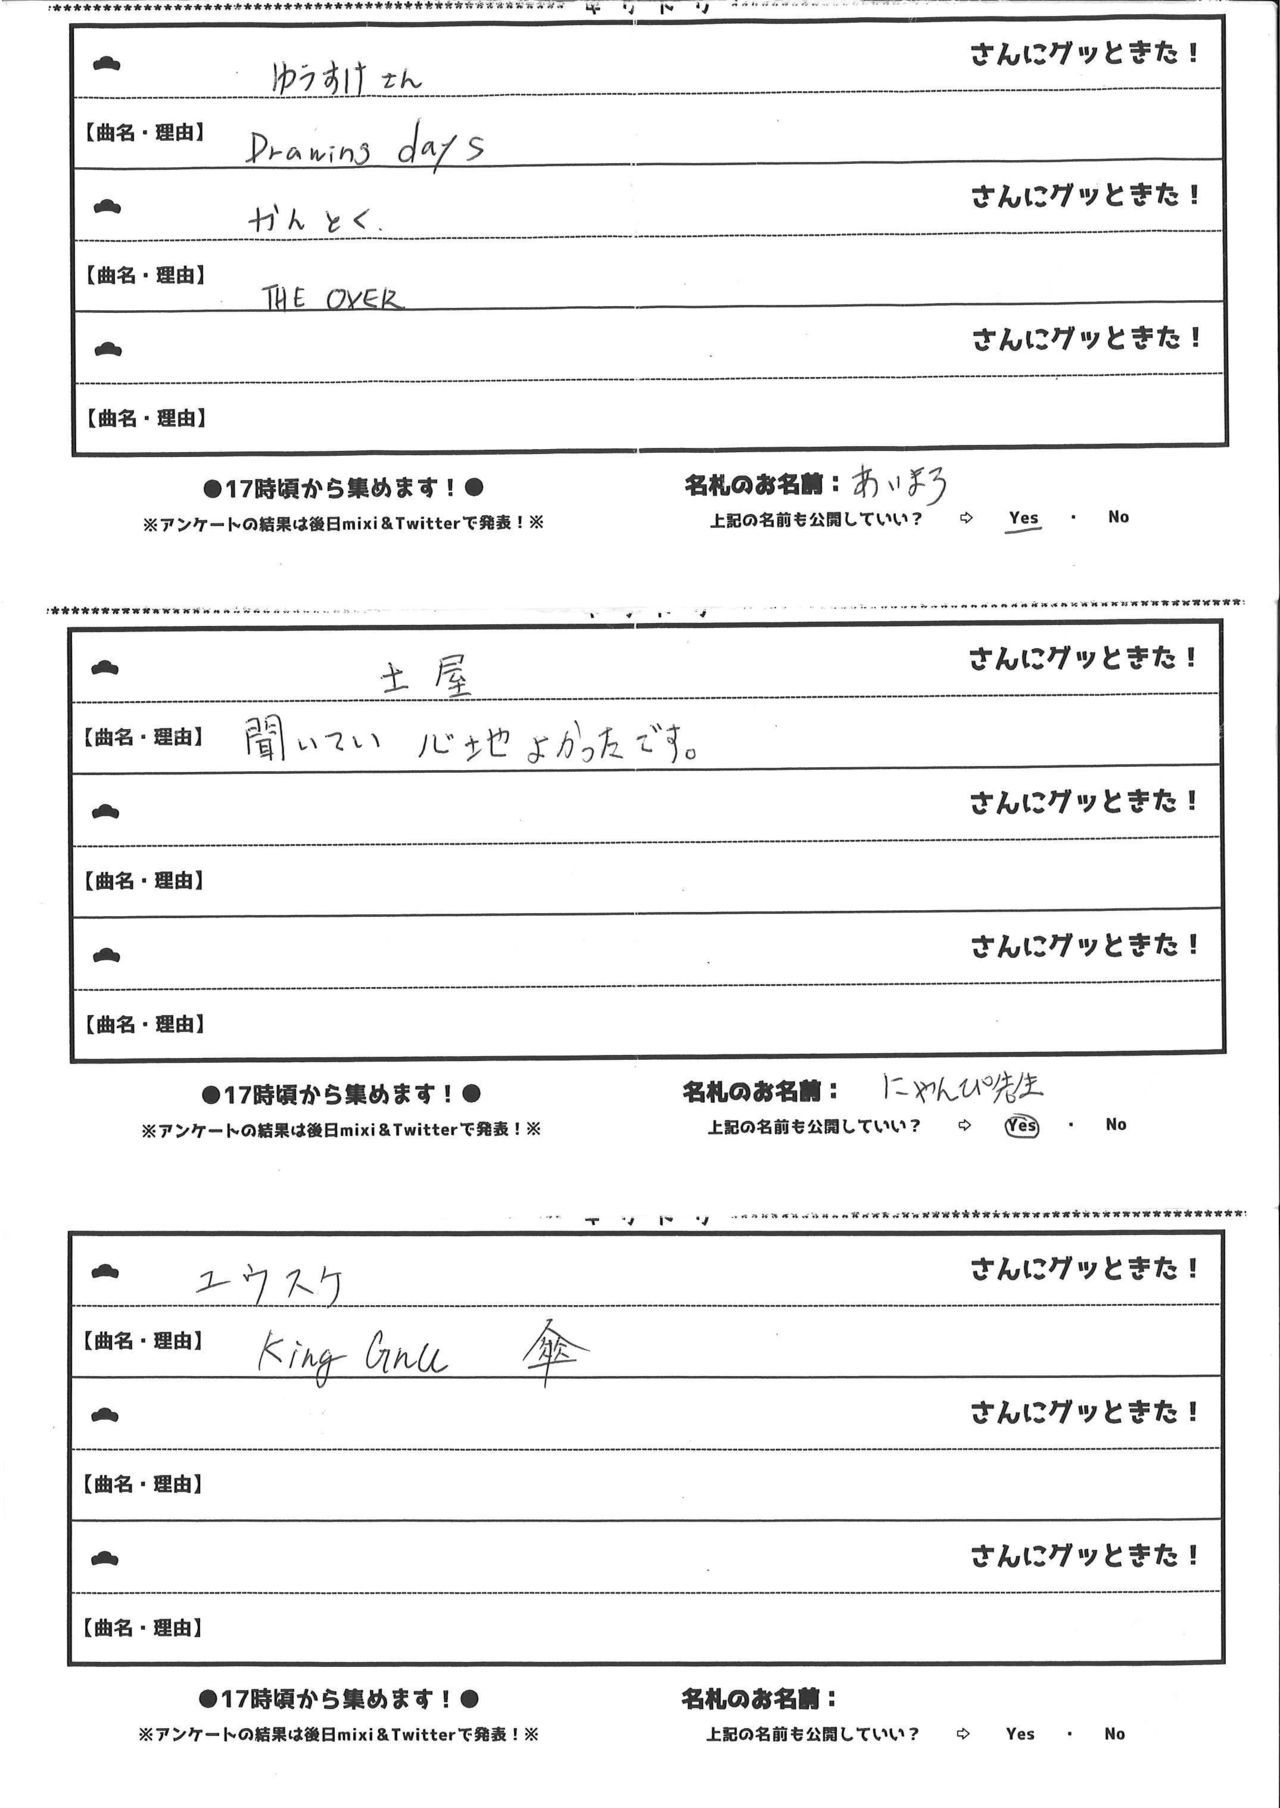 キリトリ
さんにグッときた！
ゆうすけさん
【曲名・理由】
Drawing days
さんにグッときた！
かんとく.
【曲名・理由】
THE OVER
さんにグッときた！
【曲名・理由】
●17時頃から集めます！● 名札のお名前：あいまろ
※アンケートの結果は後日mixi＆Twitterで発表！※ 上記の名前も公開していい？ ⇨ Yes ・ No
キリトリ
土屋 さんにグッときた！
【曲名・理由】 聞いてい 心地よかったです。
さんにグッときた！
【曲名・理由】
さんにグッときた！
【曲名・理由】
●17時頃から集めます！● 名札のお名前： にゃんぴ先生
※アンケートの結果は後日mixi＆Twitterで発表！※ 上記の名前も公開していい？ ⇨ Yes ・ No
キリトリ
ユウスケ さんにグッときた！
【曲名・理由】 King Gnu 傘
さんにグッときた！
【曲名・理由】
さんにグッときた！
【曲名・理由】
●17時頃から集めます！● 名札のお名前：
※アンケートの結果は後日mixi＆Twitterで発表！※ 上記の名前も公開していい？ ⇨ Yes ・ No